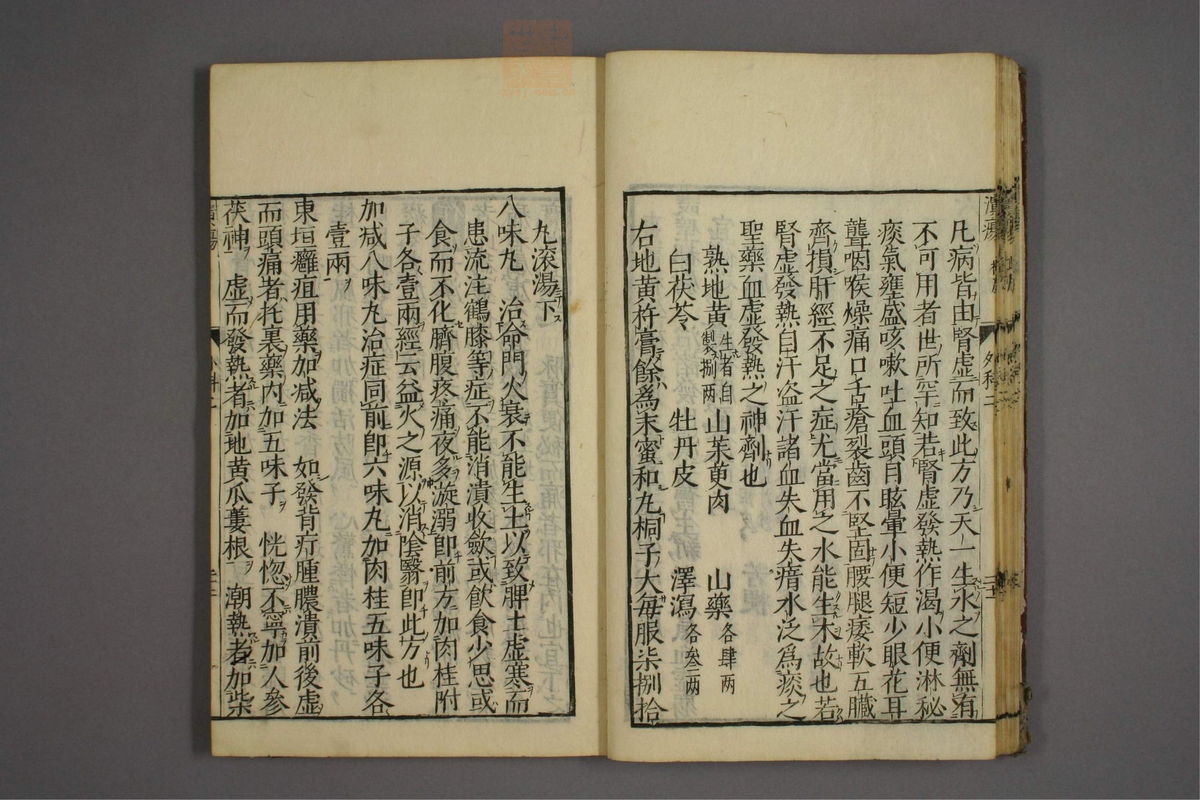 凡病皆由腎虛而致此方乃天一生水之劑無有
不可用者世所罕知若腎虛發熱作渴小便淋秘
痰氣壅盛咳嗽吐血頭目眩暈小便短少眼花耳
聾咽喉燥痛口舌瘡裂齒不堅固腰腿痿軟五臟
齊損肝經不足之症尤當用之水能生木故也若
腎虛發熱自汗盗汗諸血失血失瘖水泛爲痰之
聖藥血虛發熱之神劑也
熟地黃生者自製捌兩 山茱萸肉 山藥各肆兩
白茯苓 牡丹皮 澤瀉各叁兩
右地黃杵膏餘爲末蜜和丸桐子大每服柒捌拾
丸滚湯下
八味丸 治命門火衰不能生土以致脾土虛寒而
患流注鶴膝等症不能消潰收斂或飲食少思或
食而不化臍腹疼痛夜多漩溺卽前方加肉桂附
子各壹兩經云益火之源以消陰翳卽此方也
加减八味丸治症同前卽六味丸加肉桂五味子各
壹兩
東垣癰疽用藥加減法 如發背疔腫膿潰前後虛
而頭痛者托裏藥內加五味子 恍惚不寧加人參
茯神 虛而發熱者加地黃瓜蔞根 潮熱者加柴